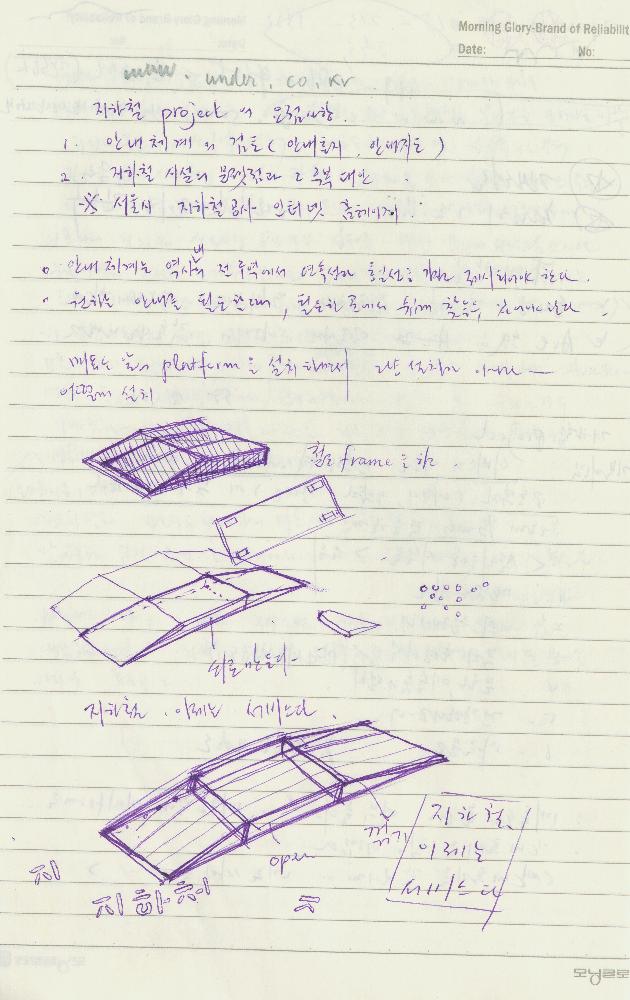 Morning Glory-Brand of Reliabilit
Date: No:
www.under.co.kr
지하철 project의
1. 안내체계의 검토 (안내표지, 안내지도)
2. 지하철 시설의 문제점과 극복 대안
서울시 지하철 공사 인터넷 홈페이지
안내체계는 역사내 전 구역에서 연속성과 통일성을 가지고 제시되어야 한다.
원하는 안내를 필요할때, 필요한 곳에서 쉽게 찾을수 있어야한다
platform을 설치
어떻게 설치
철로 frame을 하고.
지하철. 이제는 서비스다.
open
꺾기
지하철,
이제는
서비스다
지
지하철
모닝글로